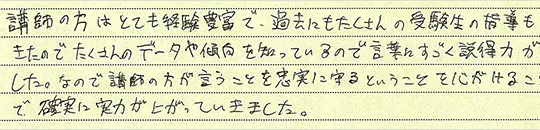 講師の方はとても経験豊富で、過去にもたくさんの受験生の指導も
きたのでたくさんのデータや傾向を知っているので言葉にすごく説得力が
した。なので講師の方が言うことを忠実に守るということを心がけるこ
で、確実に実力が上がっていきました。